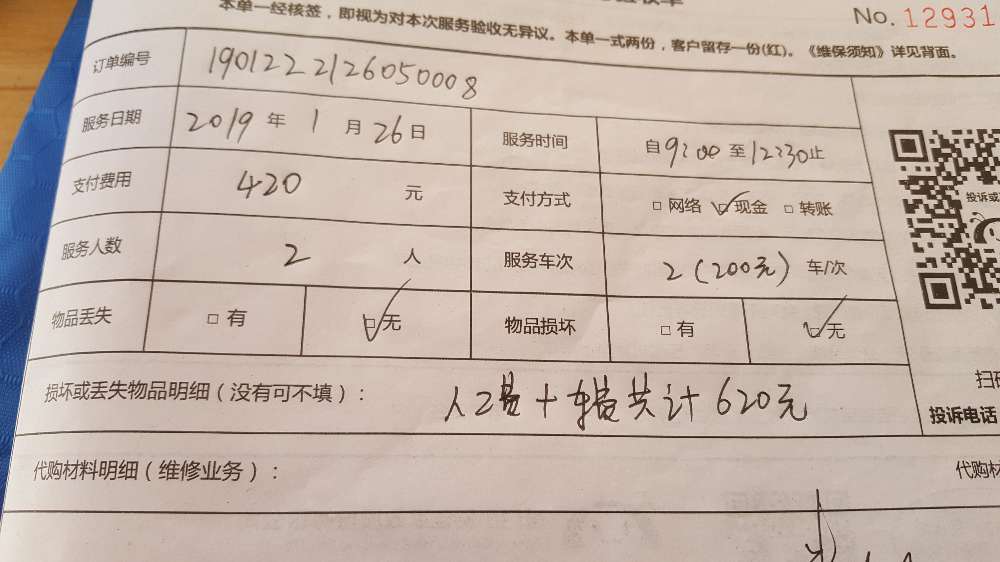 本单一经核签，即视为对本次服务验收无异议。本单一式两份，客户留存一份(红)。《维保须知》详见背面。
No. 12931
订单编号 1901222126050008
服务日期 2019 年 1 月 26 日 服务时间 自 9:00 至 12:30 止
支付费用 420 元 支付方式 □ 网络 ☑ 现金 □ 转账
服务人数 2 人 服务车次 2(200元) 车/次
物品丢失 □ 有 ☑ 无 物品损坏 □ 有 ☑ 无
投诉或
损坏或丢失物品明细（没有可不填）： 人工费+车费共计620元
扫码
投诉电话
代购材料明细（维修业务）： 代购材